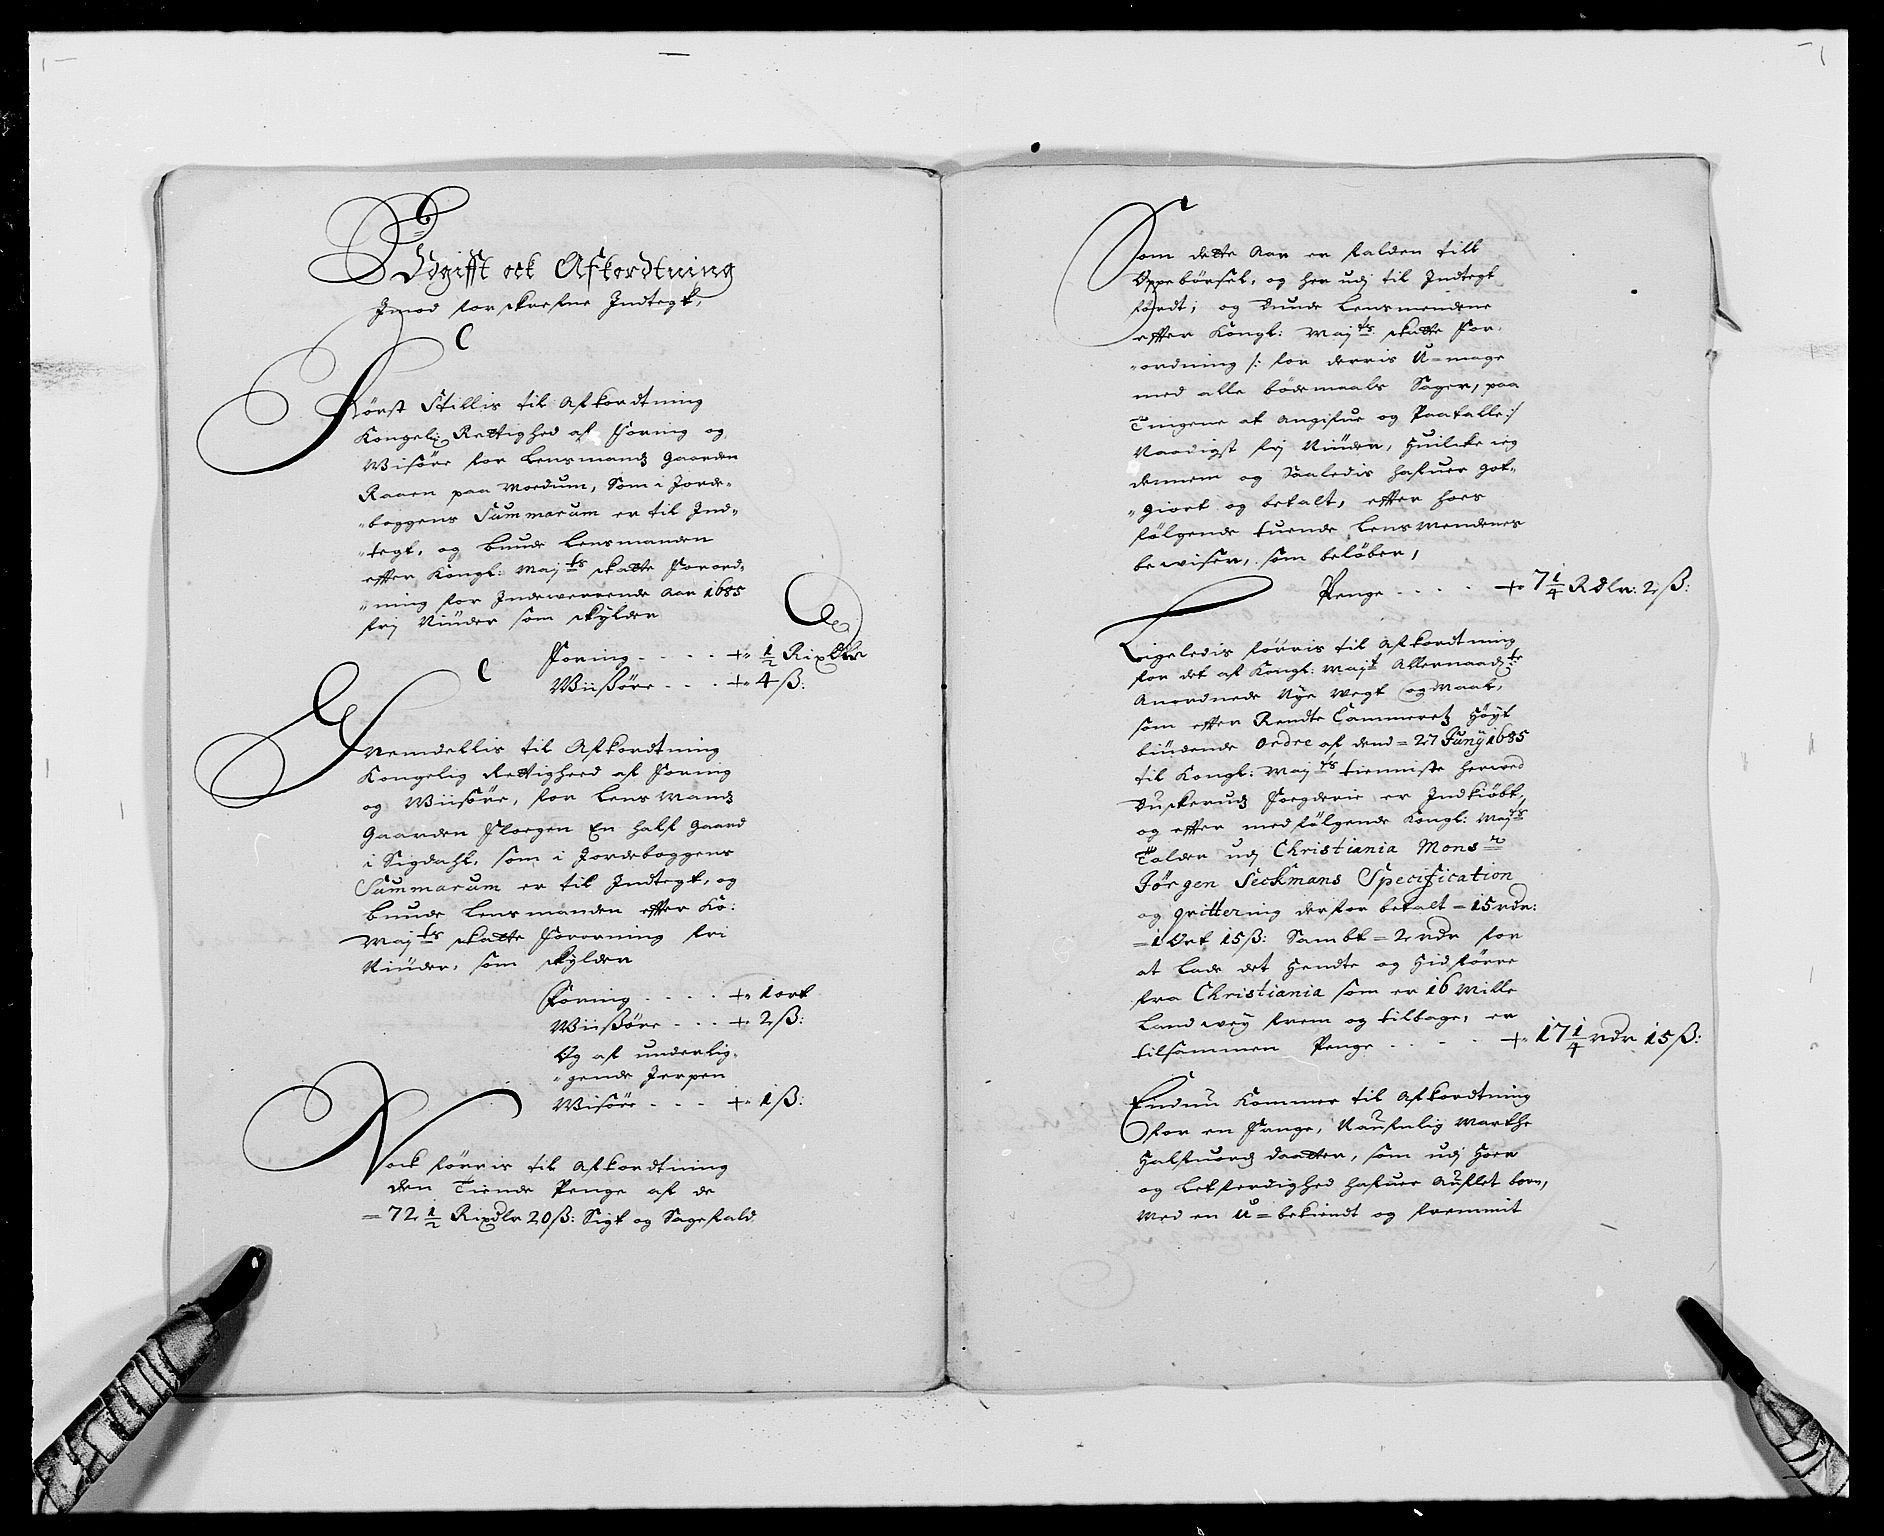 Udgifft ock Afkordtning
Imod forskrefne Indtegt,
Først Stillis til Afkordtning
Kongelig Rettighed af Foring og
Wisøre for Lensmands Gaarden
Raaen paa Moedum, Som i Jorde-
-boggens Summarum er til Ind-
-tegt, og buude Lensmanden
effter Kongl: Maj:ts skatte Forord-
-ning for Indewerende Aar 1685
frj Niuder som skylder
Foring - - - - + 1/2 Rixdlr
Wiißøre - - - + 4 ß:
Fremdellis til Afkordtning
Kongelig Rettigheed af Foring
og Wiisøre, for Lens Mands
Gaarden Floegen En half Gaard
i Sigdahl, som i Jordeboggens
Summarum er til Indtegt, og
buude Lensmanden effter Ko:
Maj:ts skatte Fororning fri
Niuder, som skylder
Foring - - - - + 1 ort
Wiißøre - - - + 2 ß:
Og af underlig-
-gende Jerpen
Wisøre - - - + 1 ß:
Nock førris til Afkordtning
den Tiende Penge af de
= 72 1/2 Rixdlr 20 ß: Sigt og Sagefald
Som dette Aar er falden till
Oppebørsel, og her udj til Indtegt
førdt; og buude Lensmendene
effter Kongl: Maj:ts skatte For-
-ordning /: for derris U-mage
med alle bødemaals Sager, paa
Tingene at angifue og Paatalle :/
Naadigst frj Niuder, Huilcke ieg
dennem og Saaledis hafuer got-
-giort og betalt, effter hoes
følgende tuende Lens Mendenes
bewiser, som beløber,
Penge - - - - + 7 1/4 Rdlr: 2 ß:
Ligeledis førris til Afkordtning
for det af Kongl: Maj:t Allernaadste
Anordnede Nye Wegt og Maal,
som effter Rendte Cammeretz Høyt
biudende Ordre af dend = 27 Junij 1685
til Kongl: Maj:ts tienniste herwed
Buskeruds Foegderie er Indkiøbt,
og effter medfølgende Kongl: Maj:ts
Tolder udj Christiania Monsr
Jørgen Seckmans Specification
og qvittering derfor betalt = 15 rdr:
= 1 Ort 15 ß: Sambt = 2 rdr for
at lade det Hendte og Hidførre
fra Christiania som er 16 Mille
Landwey frem og tilbage, er
tilsammen Penge - - - - + 17 1/4 rdr 15 ß:
Endnu Kommer til Afkordtning
for en Fange, Naufnlig Marthe
Halfuords daatter, som udj Hoer
og Letferdighed hafuer Auflet born,
Med en U=bekiendt og fremmit